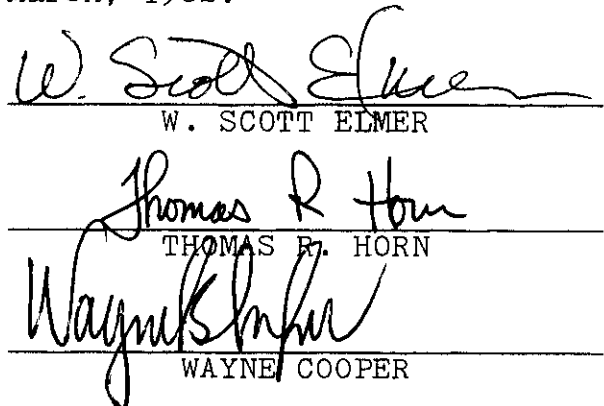 W. Scott Elmer
W. SCOTT ELMER
Thomas R Horn
THOMAS R. HORN
Wayne
WAYNE COOPER